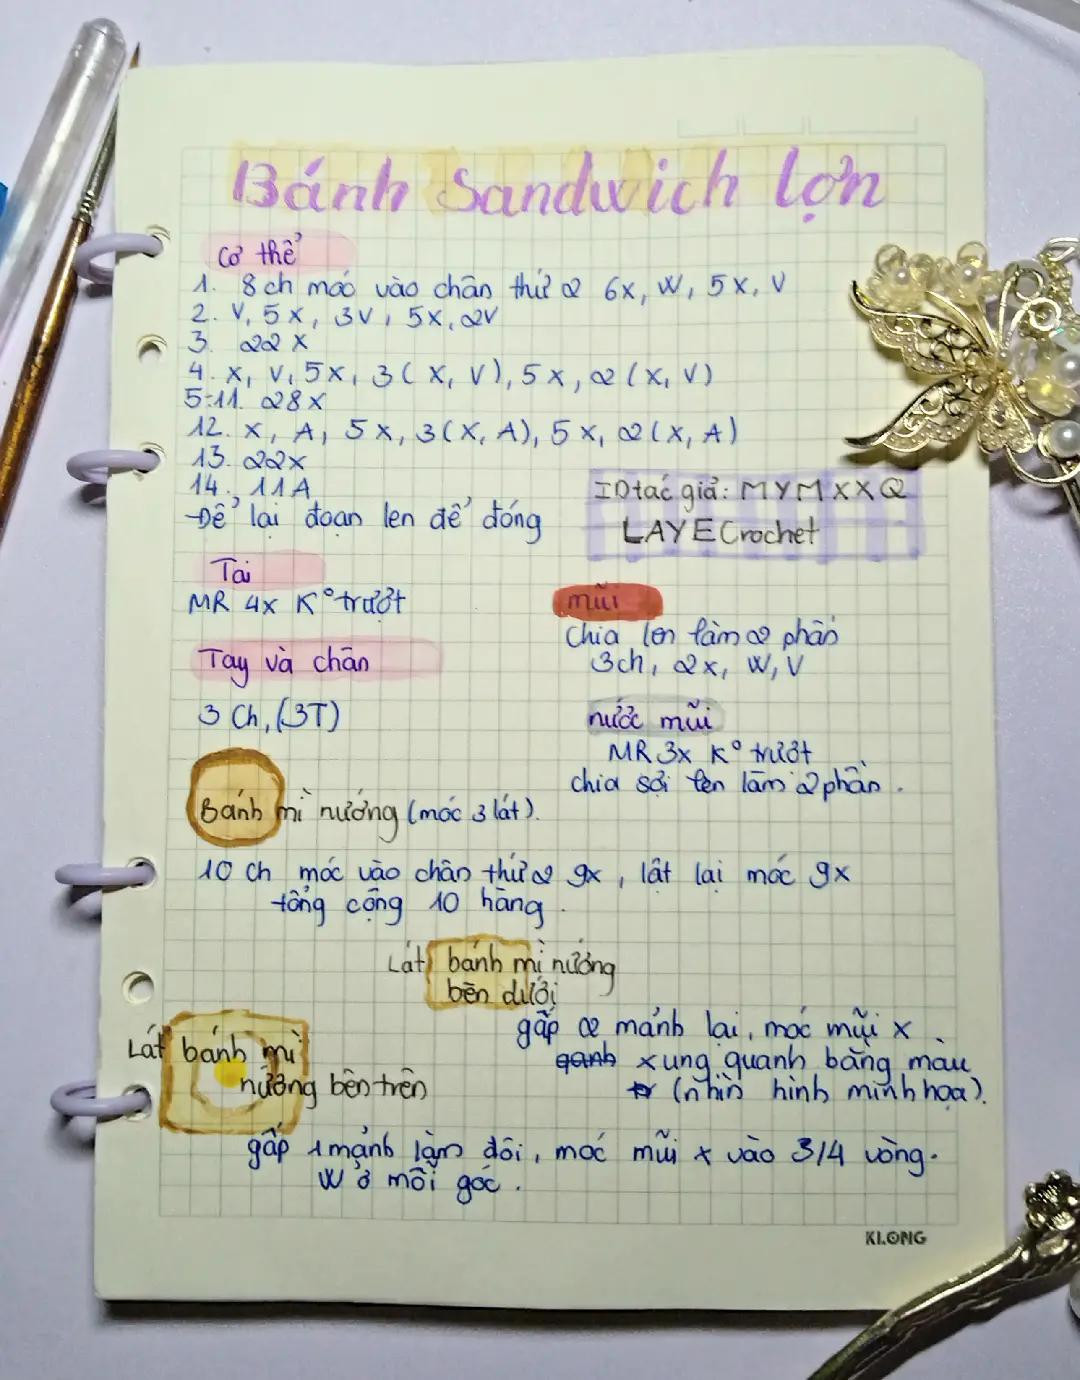 Bánh Sandwich lợn
Cơ thể
1. 8 ch móc vào chân thứ 2 6x, W, 5x, V
2. V, 5x, 3V, 5x, 2V
3. 22 x
4. x, V, 5x, 3(x, V), 5x, 2(x, V)
5-11. 28x
12. x, A, 5x, 3(x, A), 5x, 2(x, A)
13. 22x
14. 11A
-Để lại đoạn len để đóng
ID tác giả: MYMXXQ
LAYE Crochet
Tai
MR 4x K° trượt
Tay và chân
3 Ch, (3T)
mũi
Chia len làm 2 phần
3ch, 2x, W, V
nước mũi
MR 3x K° trượt
chia sợi len làm 2 phần.
Bánh mì nướng (móc 3 lát).
10 ch móc vào chân thứ 2 9x, lật lại móc 9x
tổng cộng 10 hàng.
Lát bánh mì nướng
bên dưới
gấp 2 mảnh lại, móc mũi x
quanh xung quanh bằng màu
(nhìn hình minh họa).
Lát bánh mì
nướng bên trên
gấp 1 mảnh làm đôi, móc mũi x vào 3/4 vòng.
W ở mỗi góc.
KLONG